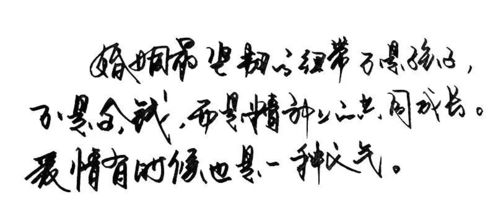 婚姻最坚韧的纽带不是孩子，
不是金钱，而是精神上的共同成长。
爱情有的时候也是一种义气。